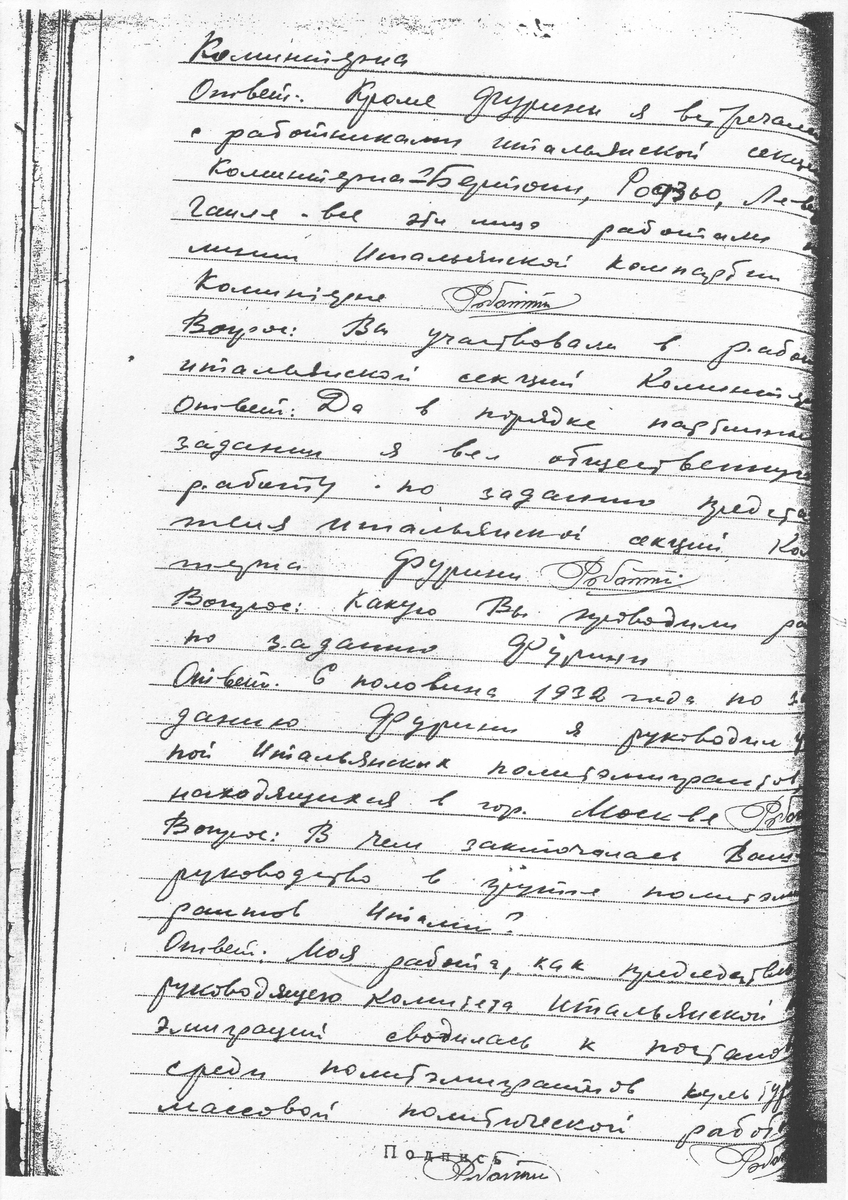 Коминтерна
Ответ: Кроме Фурини я встречался
с работниками итальянской секции
Коминтерна - Бертони, Родзьо,
все эти лица работали
линии Итальянской компартии
Коминтерне Роботти
Вопрос: Вы участвовали в рабо
итальянской секций Коминтер
Ответ: Да в порядке партийных
задании я вел общественную
работу по заданию предста
теля итальянской секций Ко
терна Фурини Роботти
Вопрос: Какую Вы проводили ра
по заданию Фурини
Ответ: С половина 1932 года по за
данию Фурини я руководил
пой Итальянских политэмигрантов,
находящихся в гор. Москве Робо
Вопрос: В чем заключалась Ваше
руководство в группе политэми
рантов Итали?
Ответ: Моя работа, как председатель
руководящего Комитета Итальянской
эмиграций сводилась к постанов
среди политэмигрантов культур
массовой политической работ
Робо
Подпись
Роботти